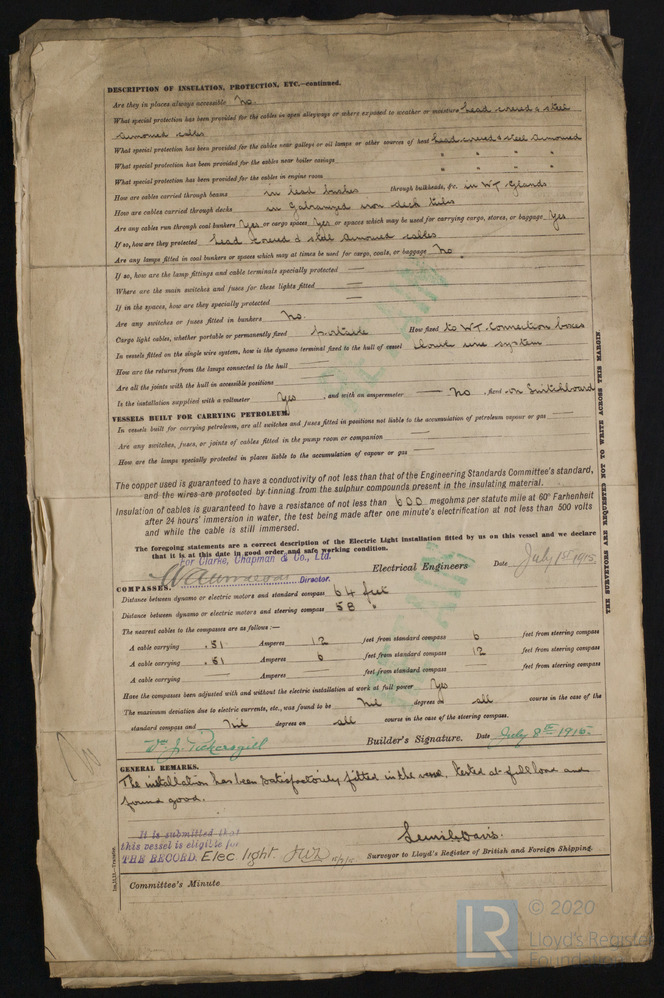 DESCRIPTION OF INSULATION, PROTECTION, ETC.—continued.
Are they in places always accessible No.
What special protection has been provided for the cables in open alleyways or where exposed to weather or moisture Lead covered & steel
armoured cables
What special protection has been provided for the cables near galleys or oil lamps or other sources of heat Lead covered & steel armoured
What special protection has been provided for the cables near boiler casings " " " "
What special protection has been provided for the cables in engine room " " " "
How are cables carried through beams in lead bushes through bulkheads, &c. in WT Glands
How are cables carried through decks in Galvanized iron deck tubes
Are any cables run through coal bunkers Yes or cargo spaces Yes or spaces which may be used for carrying cargo, stores, or baggage Yes
If so, how are they protected Lead covered & steel armoured cables
Are any lamps fitted in coal bunkers or spaces which may at times be used for cargo, coals, or baggage No.
If so, how are the lamp fittings and cable terminals specially protected —
Where are the main switches and fuses for these lights fitted —
If in the spaces, how are they specially protected —
Are any switches or fuses fitted in bunkers No.
Cargo light cables, whether portable or permanently fixed Portable How fixed to WT. Connection boxes
In vessels fitted on the single wire system, how is the dynamo terminal fixed to the hull of vessel Double wire system
How are the returns from the lamps connected to the hull —
Are all the joints with the hull in accessible positions —
Is the installation supplied with a voltmeter Yes , and with an amperemeter — No , fixed on Switchboard
VESSELS BUILT FOR CARRYING PETROLEUM.
In vessels built for carrying petroleum, are all switches and fuses fitted in positions not liable to the accumulation of petroleum vapour or gas —
Are any switches, fuses, or joints of cables fitted in the pump room or companion —
How are the lamps specially protected in places liable to the accumulation of vapour or gas —
The copper used is guaranteed to have a conductivity of not less than that of the Engineering Standards Committee's standard,
and the wires are protected by tinning from the sulphur compounds present in the insulating material.
Insulation of cables is guaranteed to have a resistance of not less than 600 megohms per statute mile at 60° Farhenheit
after 24 hours' immersion in water, the test being made after one minute's electrification at not less than 500 volts
and while the cable is still immersed.
The foregoing statements are a correct description of the Electric Light installation fitted by us on this vessel and we declare
that it is at this date in good order and safe working condition.
For Clarke, Chapman & Co., Ltd.
Director. Electrical Engineers Date July 1st 1915.
COMPASSES.
Distance between dynamo or electric motors and standard compass 64 feet
Distance between dynamo or electric motors and steering compass 58 "
The nearest cables to the compasses are as follows:—
A cable carrying .51 Amperes 12 feet from standard compass 6 feet from steering compass
A cable carrying .51 Amperes 6 feet from standard compass 12 feet from steering compass
A cable carrying — Amperes — feet from standard compass — feet from steering compass
Have the compasses been adjusted with and without the electric installation at work at full power Yes
The maximum deviation due to electric currents, etc., was found to be Nil degrees on all course in the case of the
standard compass and Nil degrees on all course in the case of the steering compass.
Wm J. Pickersgill Builder's Signature. Date July 8th 1915.
GENERAL REMARKS.
The installation has been satisfactorily fitted in the vessel, tested at full load and
found good.
It is submitted that
this vessel is eligible for
THE RECORD. Elec. light.
Surveyor to Lloyd's Register of British and Foreign Shipping.
Committee's Minute
THE SURVEYORS ARE REQUESTED NOT TO WRITE ACROSS THIS MARGIN.
LR
© 2020
Lloyd's Register
Foundation